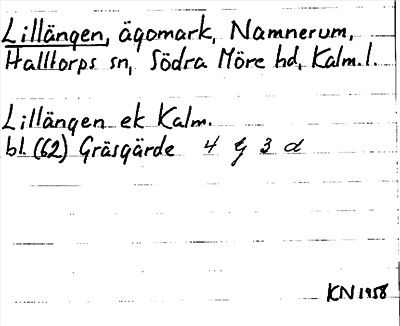 Lillängen, ägomark, Namnerum,
Halltorps sn, Södra Möre hd, Kalm. l.
Lillängen ek Kalm.
bl. (62) Gräsgärde 4 G 3 d
KN 1958